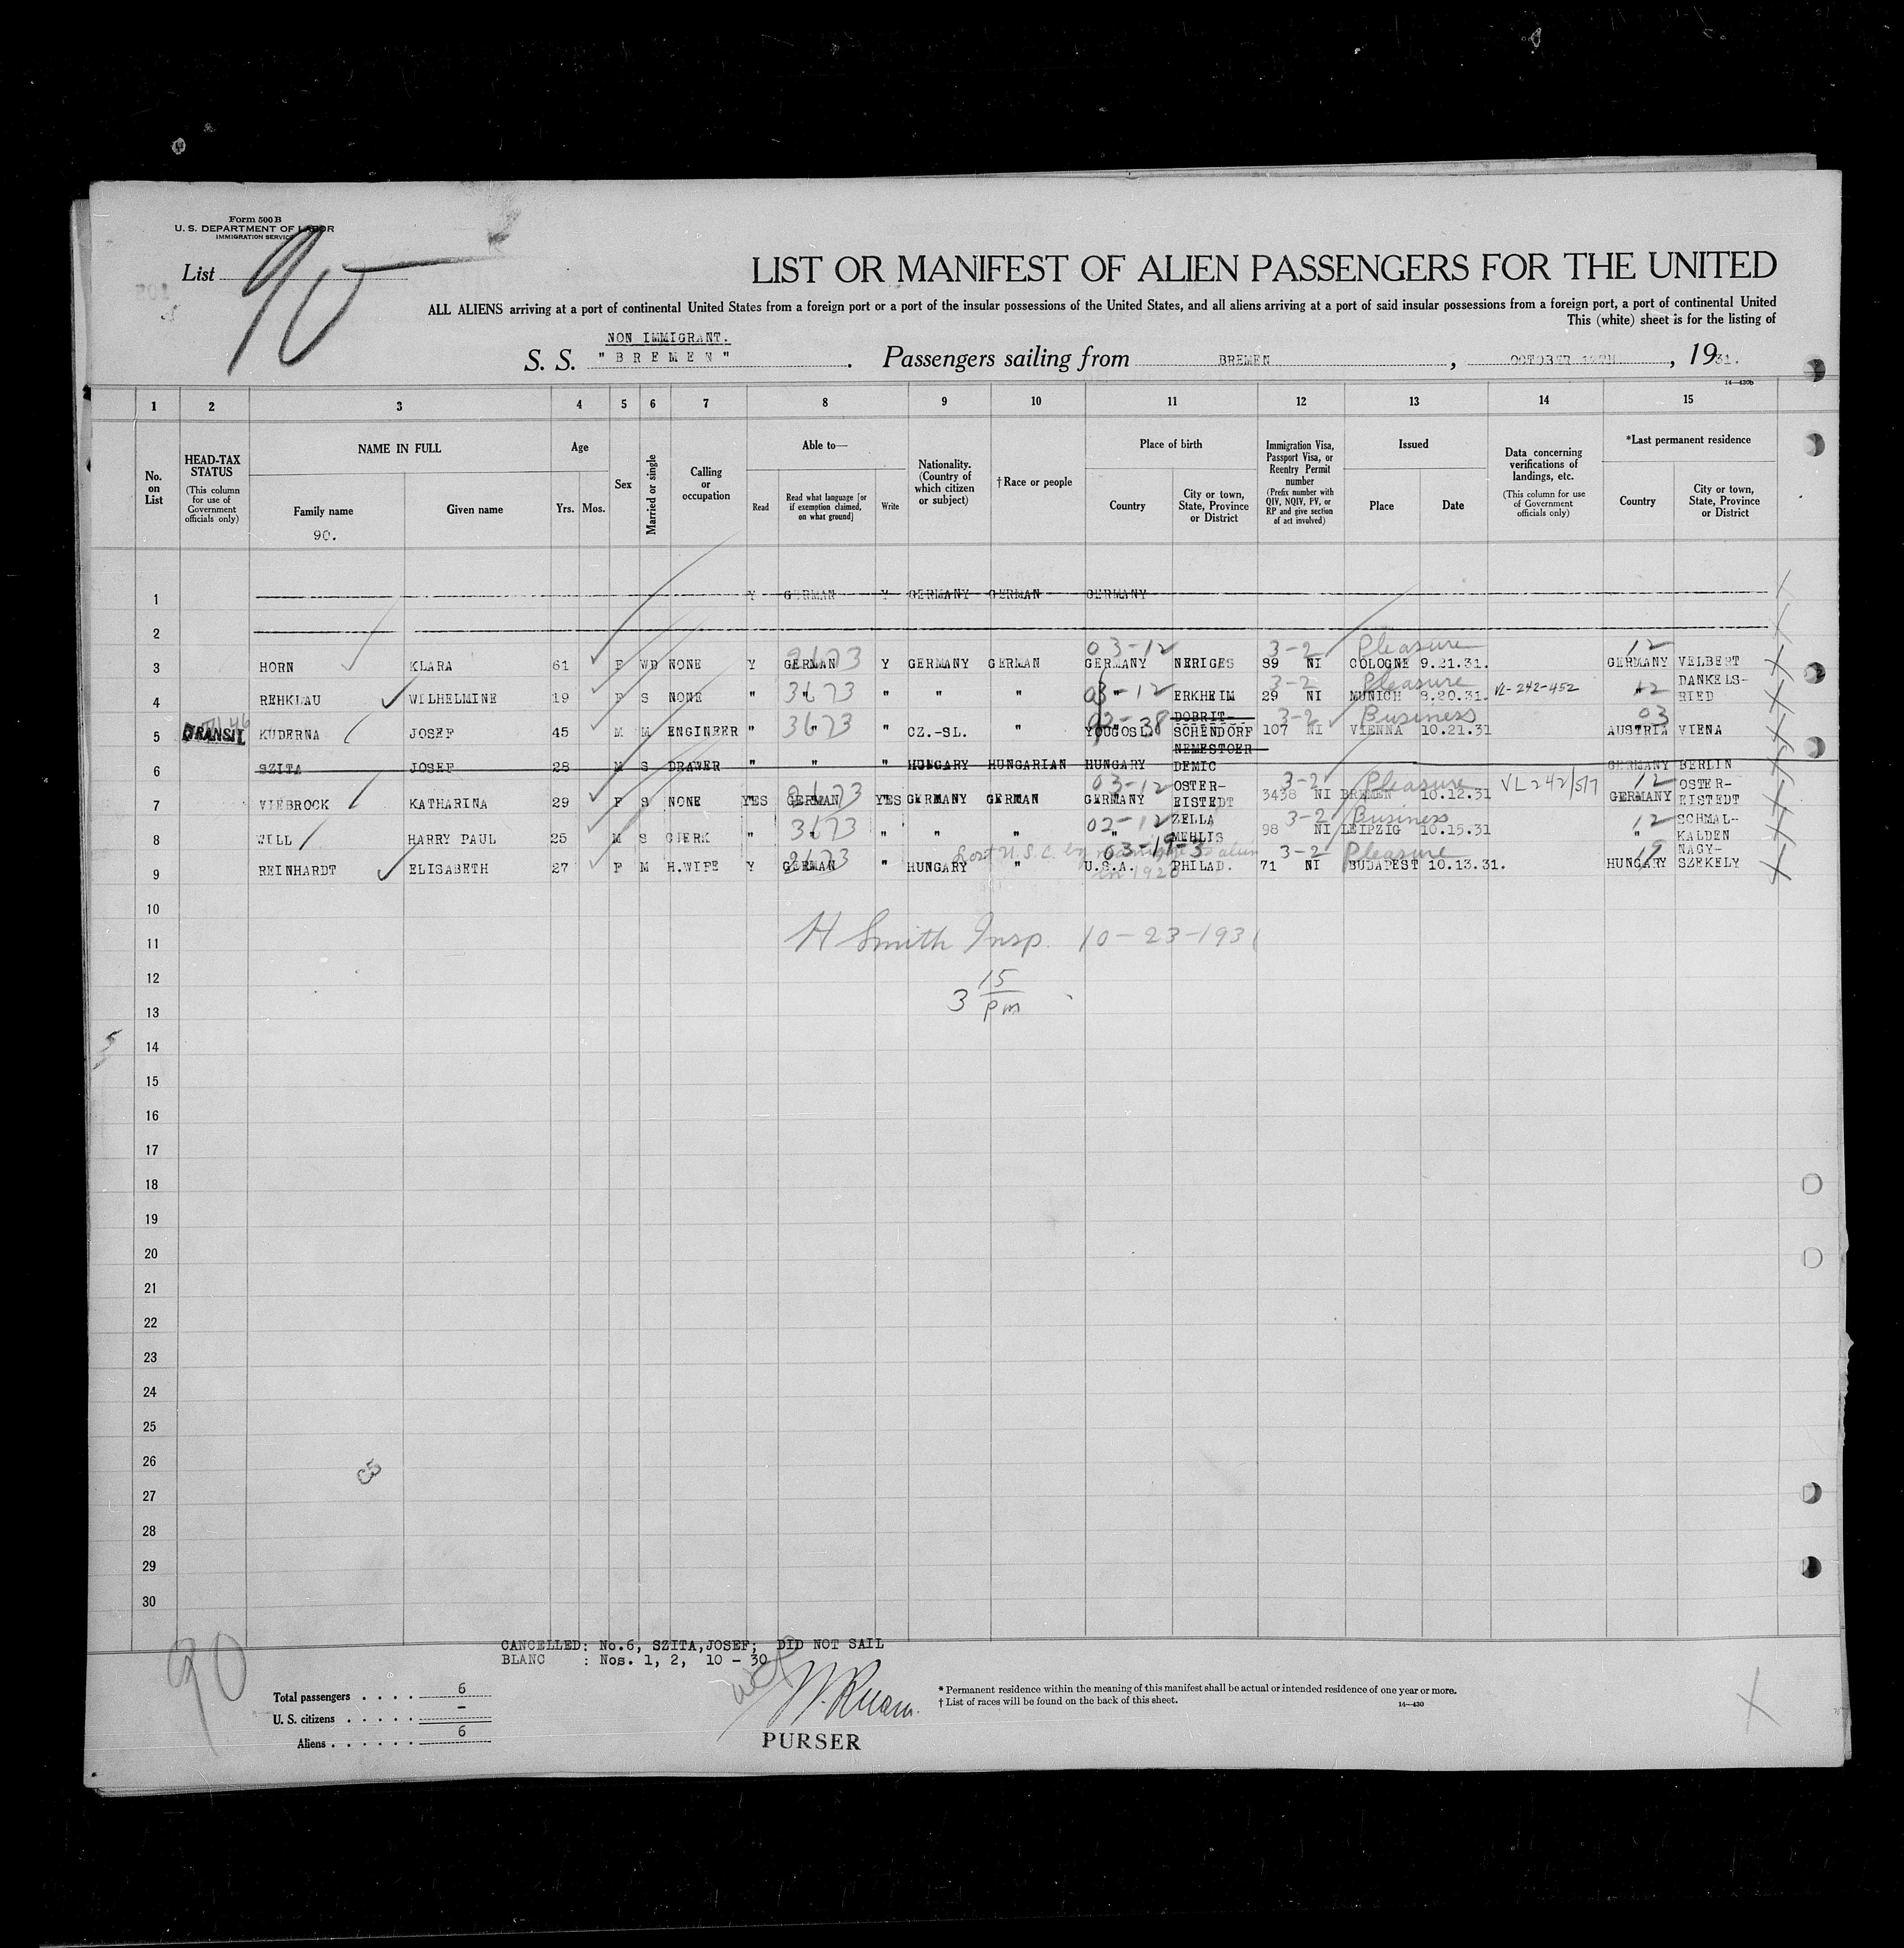 Form 500 B
U. S. DEPARTMENT OF LABOR
IMMIGRATION SERVICE
List 90
LIST OR MANIFEST OF ALIEN PASSENGERS FOR THE UNITED
ALL ALIENS arriving at a port of continental United States from a foreign port or a port of the insular possessions of the United States, and all aliens arriving at a port of said insular possessions from a foreign port, a port of continental United
This (white) sheet is for the listing of
NON IMMIGRANT.
S. S. "BREMEN". Passengers sailing from BREMEN, OCTOBER, 1931.
14—430b
1 2 3 4 5 6 7 8 9 10 11 12 13 14 15
No. on List
HEAD-TAX STATUS (This column for use of Government officials only)
NAME IN FULL
Family name
Given name
90.
Age
Yrs. Mos.
Sex
Married or single
Calling or occupation
Able to—
Read
Read what language [or if exemption claimed, on what ground]
Write
Nationality. (Country of which citizen or subject)
†Race or people
Place of birth
Country
City or town, State, Province or District
Immigration Visa, Passport Visa, or Reentry Permit number (Prefix number with QIV, NQIV, PV, or RP and give section of act involved)
Issued
Place
Date
Data concerning verifications of landings, etc. (This column for use of Government officials only)
*Last permanent residence
Country
City or town, State, Province or District
1 Y GERMAN Y GERMANY GERMAN GERMANY
2
03-12 3-2 Pleasure 12
3 HORN KLARA 61 F WD NONE Y GERMAN Y GERMANY GERMAN GERMANY NERIGES 89 NI COLOGNE 9.21.31. GERMANY VELBERT
3673 03-12 3-2 Pleasure 12 DANKELS-
4 REHKLAU WILHELMINE 19 F S NONE " " " " " " ERKHEIM 29 NI MUNICH 8.20.31. VL-242-452 " RIED
3673 02-38 DOBRIT- 3-2 Business 03
5 TRANSIT KUDERNA JOSEF 45 M M ENGINEER " " " CZ.-SL. " YOUGOSL. SCHENDORF 107 NI VIENNA 10.21.31 AUSTRIA VIENA
NEMESTOER
6 SZITA JOSEF 28 M S DRAWER " " " HUNGARY HUNGARIAN HUNGARY DEMIC GERMANY BERLIN
03-12 OSTER- 3-2 Pleasure VL 242/517 12 OSTER-
7 VIEBROCK KATHARINA 29 F S NONE YES GERMAN YES GERMANY GERMAN GERMANY EISTEDT 3438 NI BREMEN 10.12.31 GERMANY EISTEDT
3673 02-12 ZELLA 3-2 Business 12 SCHMAL-
8 WILL HARRY PAUL 25 M S CLERK " " " " " " MEHLIS 98 NI LEIPZIG 10.15.31 " KALDEN
Lost U.S.C. by marriage to alien in 1920 03-19-3 3-2 Pleasure 19 NAGY-
9 REINHARDT ELISABETH 27 F M H.WIFE Y GERMAN " HUNGARY " U.S.A. PHILAD. 71 NI BUDAPEST 10.13.31. HUNGARY SZEKELY
10
H Smith Insp. 10-23-1931
11
12
3 15 pm
13
14
15
16
17
18
19
20
21
22
23
24
25
26
27
28
29
30
90
CANCELLED: No.6, SZITA,JOSEF; DID NOT SAIL
BLANC : Nos. 1, 2, 10 - 30
Total passengers . . . . 6
U. S. citizens . . . . . -
Aliens . . . . . . 6
PURSER
* Permanent residence within the meaning of this manifest shall be actual or intended residence of one year or more.
† List of races will be found on the back of this sheet.
14—430